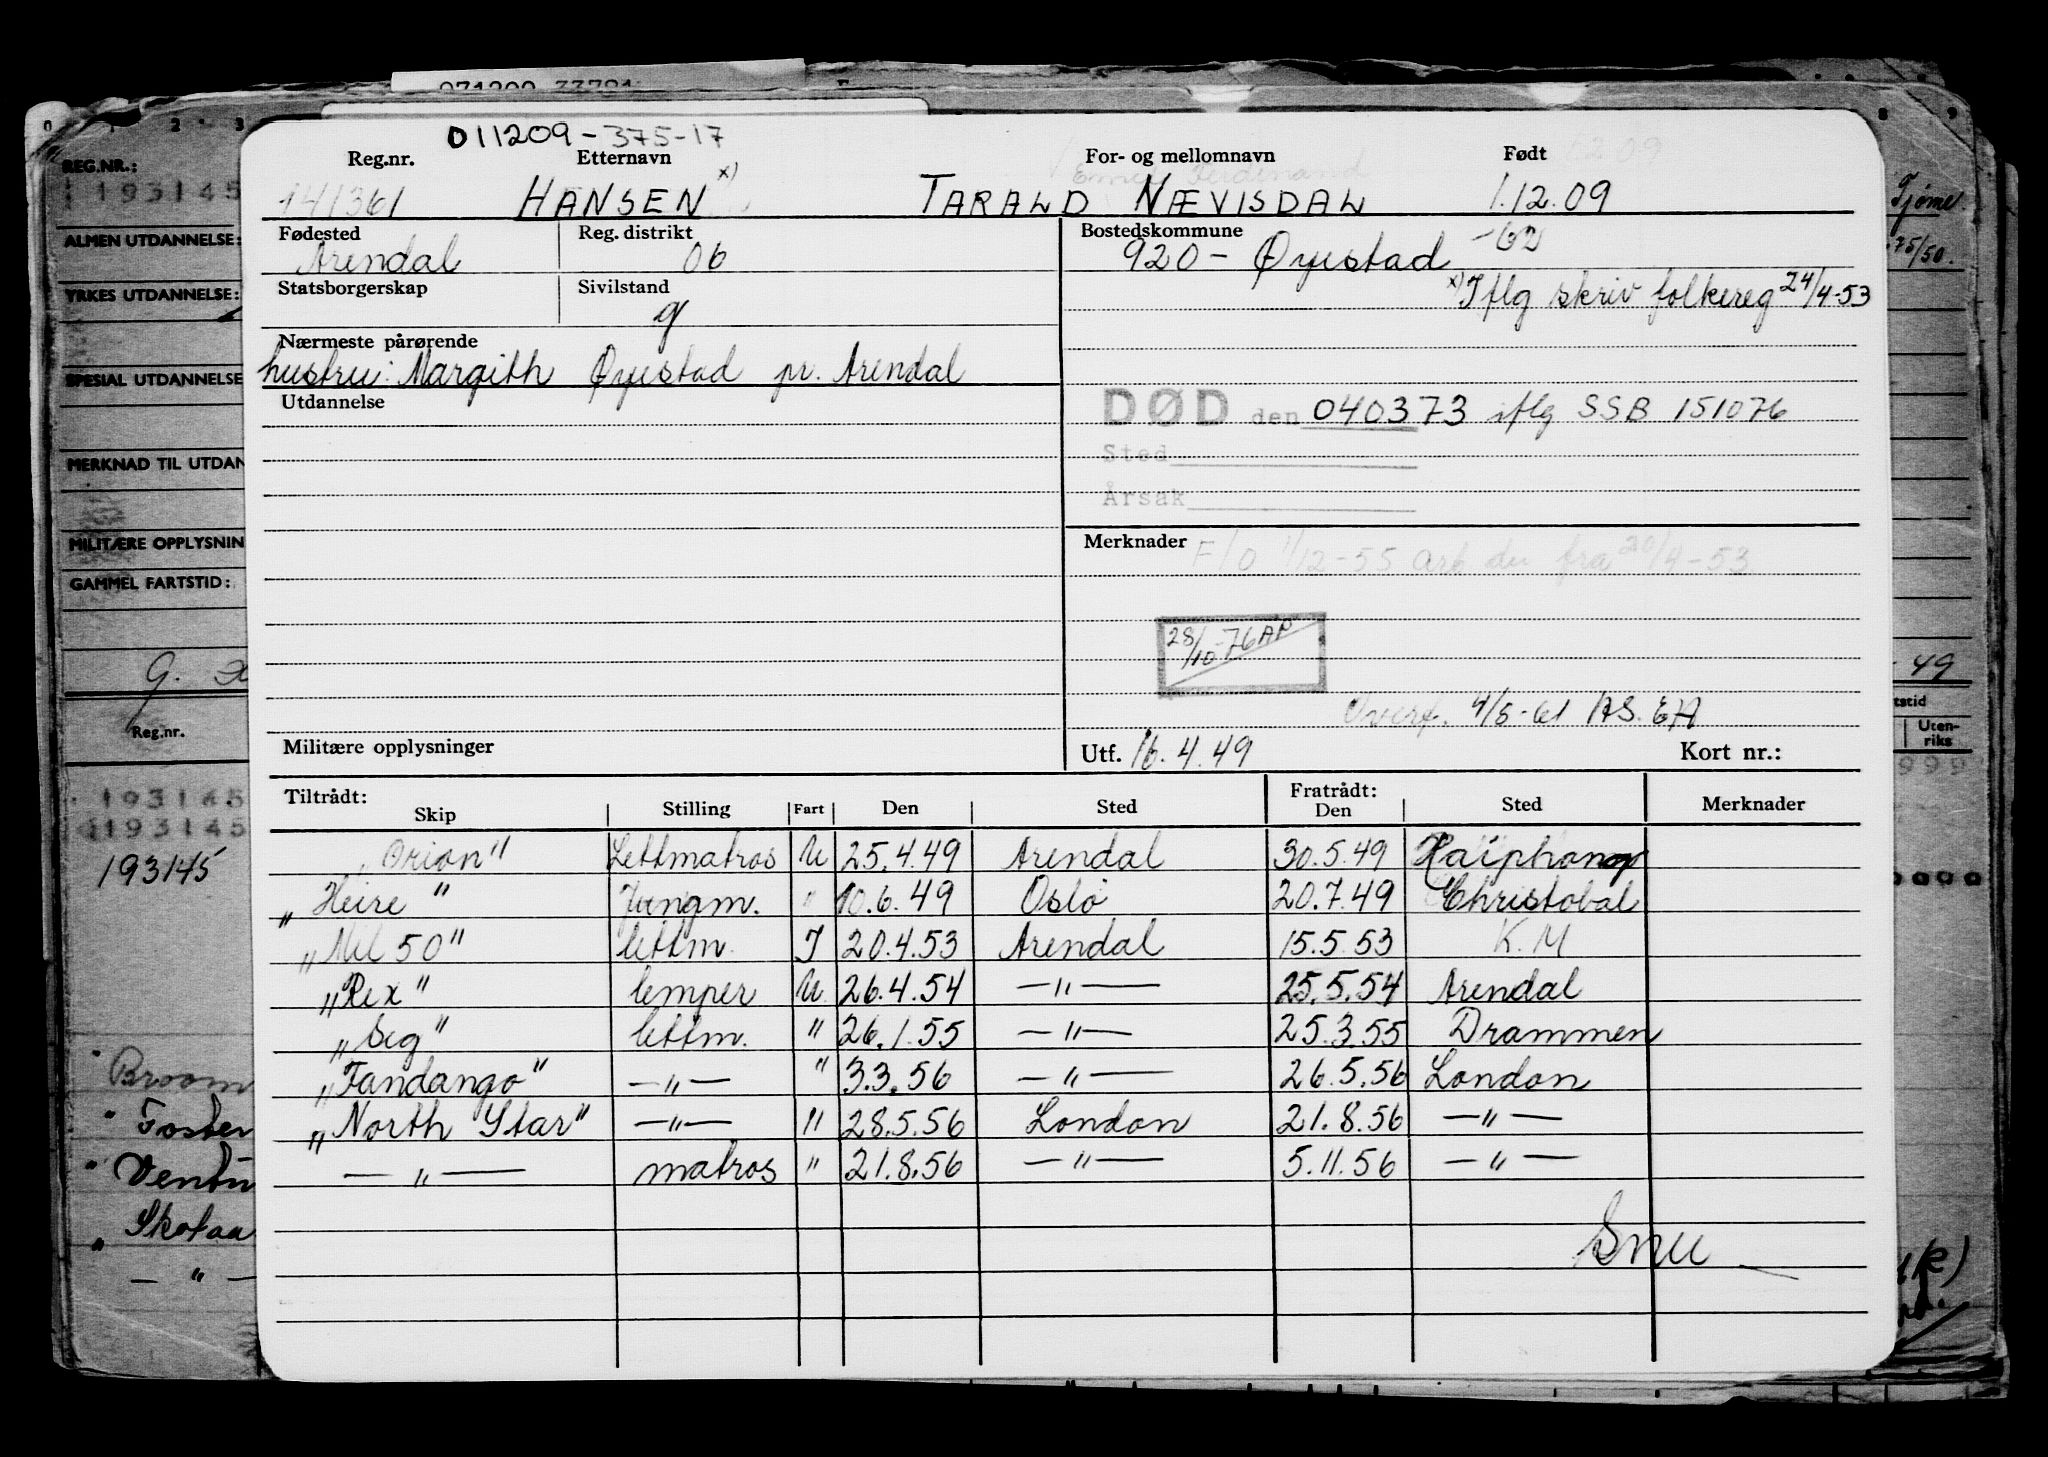 071209 33781
0 1 2 3 8 9
011209-375-17
Reg.nr. Etternavn For- og mellomnavn Født
141361 HANSEN x) TARALD NÆVISDAL 1.12.09
Fødested Reg. distrikt Bostedskommune
Arendal 06 920 - Øyestad -62
Statsborgerskap Sivilstand x) Iflg skriv folkereg 24/4-53
g
Nærmeste pårørende
hustru: Margith Øyestad pr. Arendal
Utdannelse
DØD den 040373 iflg SSB 151076
Sted
Årsak
Merknader F/O 1/12-55 Arb. du fra 20/4-53
28/10-76 AP
Overf. 4/5-61 AS. EA
Militære opplysninger Utf. 16.4.49 Kort nr.:
Tiltrådt: Fratrådt:
Skip Stilling Fart Den Sted Den Sted Merknader
"Orion" Lettmatros U 25.4.49 Arendal 30.5.49 Haiphong
"Heire" Jungm. " 10.6.49 Oslo 20.7.49 Christobal
"Mil 50" lettm. I 20.4.53 Arendal 15.5.53 K.M
"Rex" lemper U 26.4.54 —"— 25.5.54 Arendal
"Seg" lettm. " 26.1.55 —"— 25.3.55 Drammen
"Fandango" —"— " 3.3.56 —"— 26.5.56 London
"North Star" —"— " 28.5.56 London 21.8.56 —"—
—"— matros " 21.8.56 —"— 5.11.56 —"—
Snu
REG.NR.:
193145
ALMEN UTDANNELSE:
YRKES UTDANNELSE:
SPESIAL UTDANNELSE
MERKNAD TIL UTDAN
MILITÆRE OPPLYSNIN
GAMMEL FARTSTID:
G. x
Reg.nr.
193145
193145
193145
Broom
" Foster
" Ventu
" Skotaa
— " —
Tjøme
75/50.
- 49
tstid
Uten-
riks
999